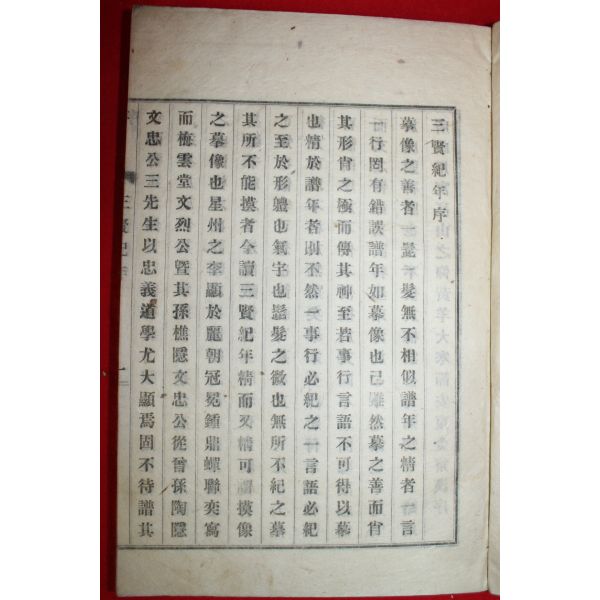 三賢紀年序
摹像之善者一毫一髮無不相似譜年之精者一言
一行罔有錯誤譜年如摹像也已雖然摹之善而肖
其形肖之極而傳其神至若事行言語不可得以摹
也精於譜年者則不然一事行必紀之一言語必紀
之至於形軆也氣宇也髭髮之微也無所不紀之摹
其所不能摸者今讀三賢紀年精而又精可謂摸像
之摹像也星州之李顯於麗朝冠冕鍾鼎蟬聯奕寫
而梅雲堂文烈公曁其孫樵隱文忠公從曾孫陶隱
文忠公三先生以忠義道學尤大顯焉固不待譜其
三賢紀 序 一